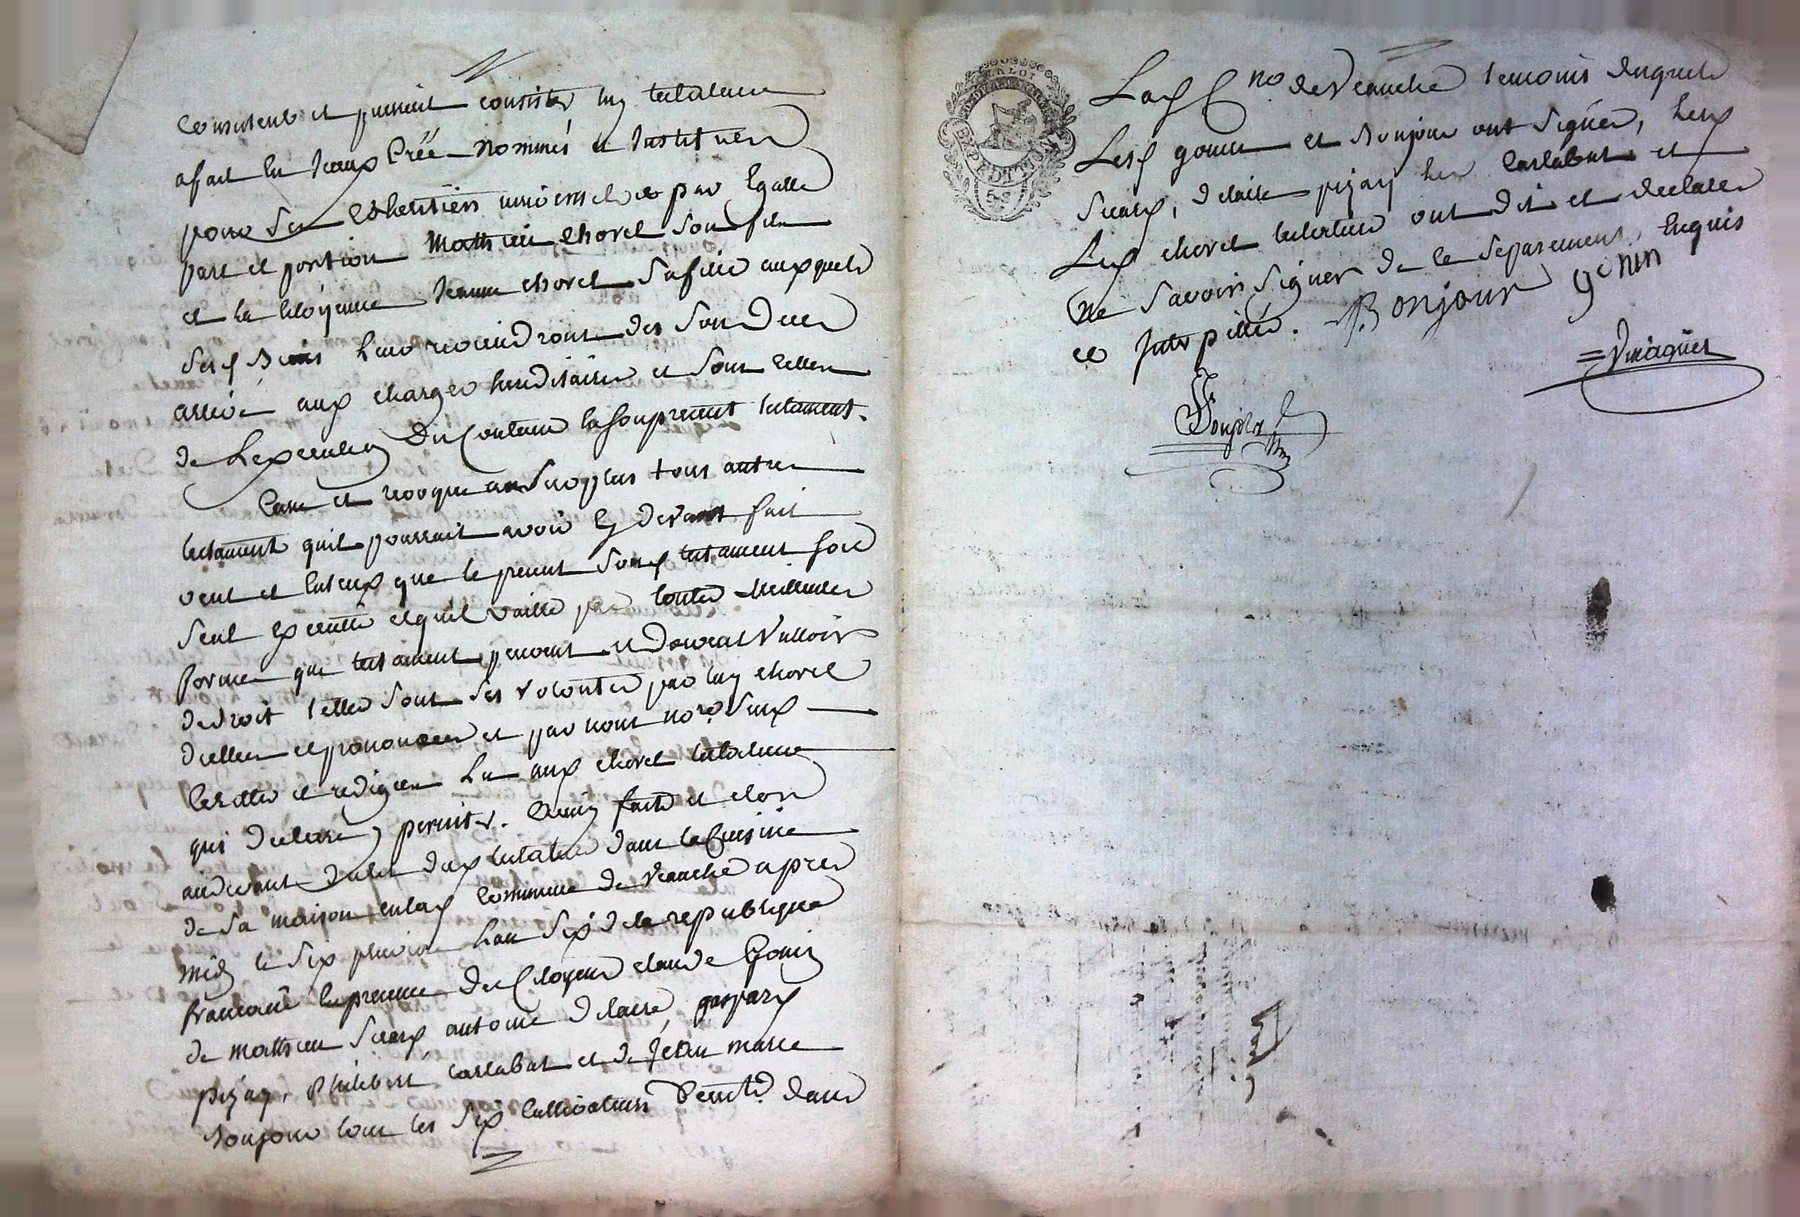 consistent et puissent consister luy testateur
a fait et creé nommés et institués
pour ses heritiers universels par Egalle
part et portion Matthieu chovel son fils
et la citoyenne jeanne chovel sa fille auxquels
ses biens luro reviendront des son deces
arrivé aux charges hereditaires et sous celles
de Lexecution du contenu au present testament.
Casse et revoque au surplus tous autres
testament quil pourrait avoir cy devant fait
veut et entend que le present son testament soit
seul Executté et quil vaille par toutes meilleures
formes que testament peuvent et doivent valloir
de droit telles sont ses volontés par luy chovel
dictées et prononcées et par nous no.re sous
Ecrittes et redigées Lu aud chovel testateur
qui declaré y persister. Ainsy fait et clos
au devant du lit dud testateur dans la Cuisine
de sa maison en lad commune de Veauche apres
midy le six pluviose L'an six de la republique
francaise En presence des Citoyens claude Gonin
de matthieu antoine delaire, gaspard
pizay, Philibert carlabat et de jean marie
Bonjour tous les six cultivateurs demt.s dans
Lad C.no de Veauche temoins desquels
Lesd gonin et Bonjour ont signés, Les
delaire pizay Les carlabat et
Led chovel testateur ont dit et declarés
ne savoir signer de ce separement Enquis
et Interpellés. Bonjour genin
LA LOI
EXPEDITION